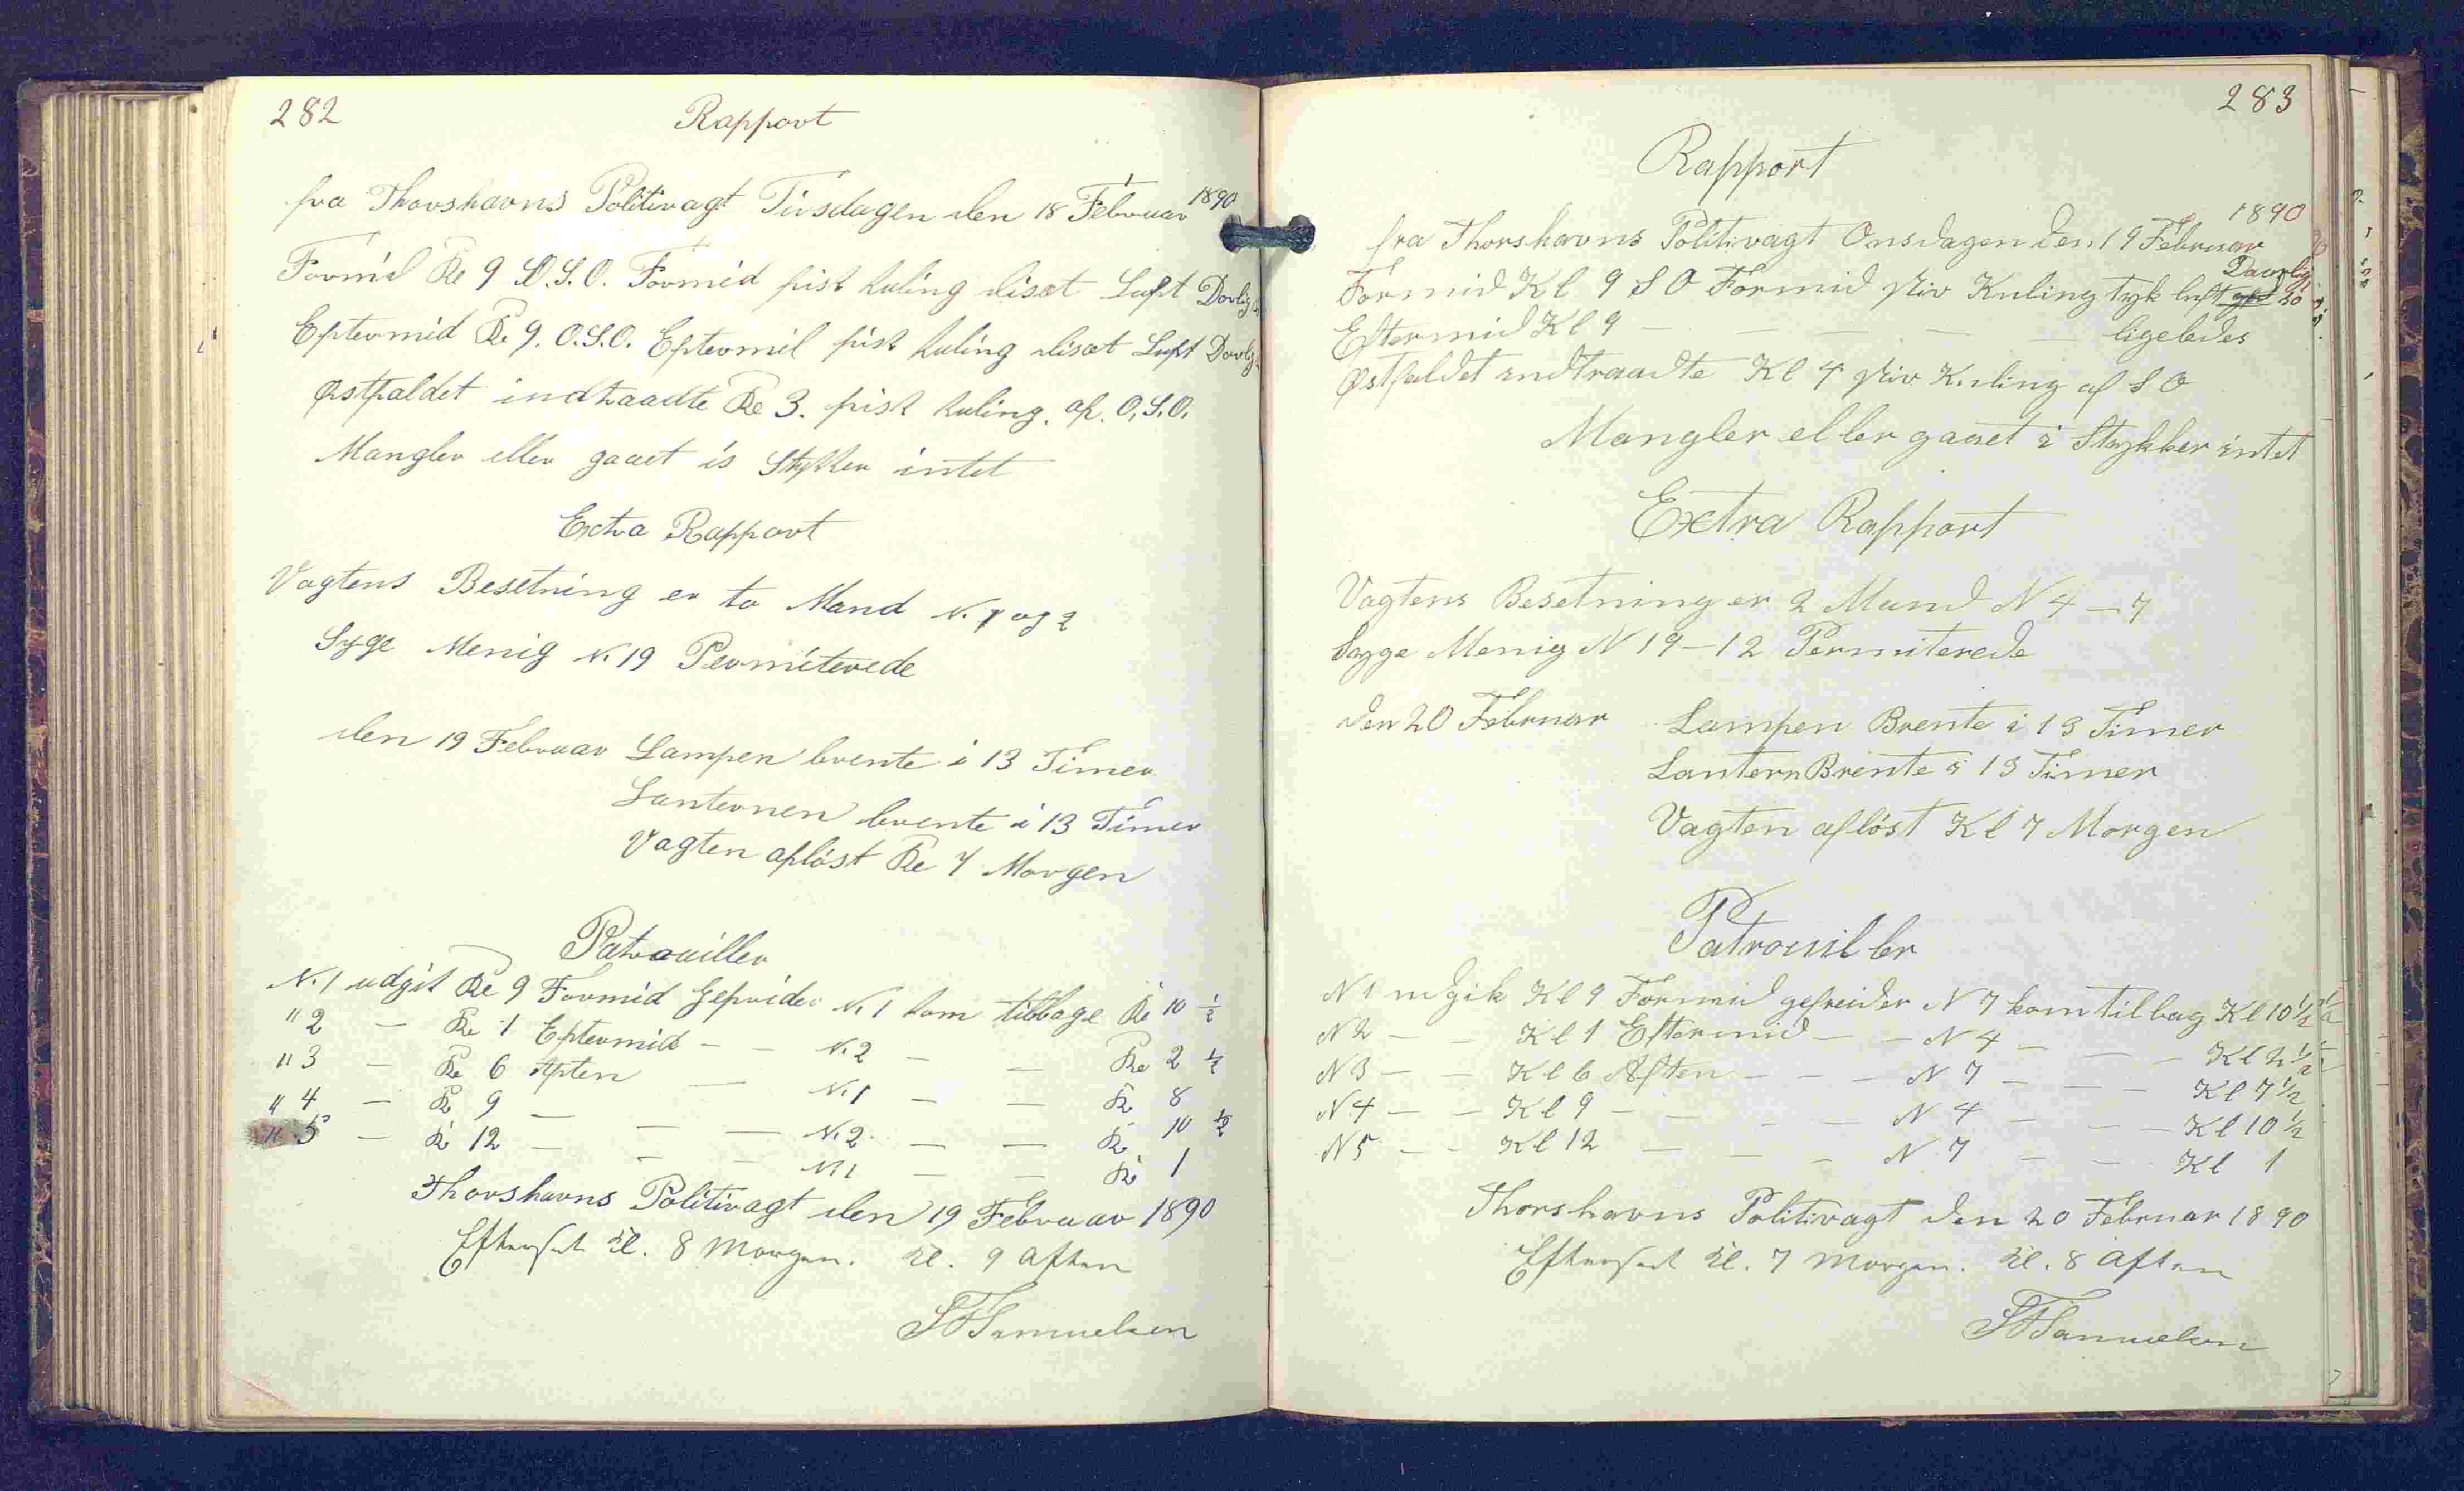 282
Rapport
fra Thorshavns Politivagt Tirsdagen den 18 Februar 1890
Formid Kl 9 O.S.O. Formid frisk kuling diset Luft Dorlig
Eftermid Kl. 9. O.S.O. Eftermid frisk kuling diset Luft Dorlig
Østfaldet indtraadte Kl 3. frisk kuling. af. O.S.O.
Mangler eller gaaet is Stykker intet
Extra Rapport
Vagtens Besetning er to Mand N. 1 og 2
Syge Menig N. 19 Permiterede
den 19 Februar Lampen brente i 13 Timer
Lanternen brente i 13 Timer
Vagten afløst Kl 7 Morgen
Patrouiller
N. 1 udgik Kl 9 Formid Gefrider N. 1 kom tilbage Kl 10 1/2
" 2 — Kl 1 Eftermid — — N. 2 — — Kl 2 1/2
" 3 — Kl 6 Aften — N. 1 — — Kl 8
" 4 — Kl 9 — — — N. 2 — — Kl 10 1/2
" 5 — Kl 12 — — — N. 1 — — Kl 1
Thorshavns Politivagt den 19 Februar 1890
Efterset Kl. 8 Morgen. Kl. 9 Aften
Samuelsen
283
Rapport
1890
fra Thorshavns Politivagt Onsdagen den 19 Februar
Formid Kl 9 S O Formid stiv Kuling tyk luft Daarlig
Eftermid Kl 9 — — — — — ligeledes
Østfaldet indtraadte Kl 4 stiv Kuling af S O
Mangler eller gaaet i Stykker intet
Extra Rapport
Vagtens Besetning er 2 Mand N 4 — 7
Sygge Menig N 19 — 12 Permiterede
den 20 Februar Lampen Brente i 13 Timer
Lantern Brente i 13 Timer
Vagten afløst Kl 7 Morgen
Patrouiller
N 1 udgik Kl 9 Formid gefreider N 7 kom tilbag Kl 10 1/2
N 2 — — Kl 1 Eftermid — — N 4 — — — Kl 2 1/2
N 3 — — Kl 6 Aften — — — N 7 — — — Kl 7 1/2
N 4 — — Kl 9 — — — — N 4 — — — Kl 10 1/2
N 5 — — Kl 12 — — — N 7 — — — Kl 1
Thorshavns Politivagt den 20 Februar 1890
Efterset Kl. 7 Morgen. Kl. 8 Aften
Samuelsen